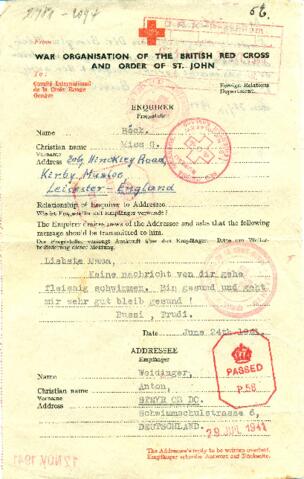 From
WAR ORGANISATION OF THE BRITISH RED CROSS
AND ORDER OF ST. JOHN
To:
Comité International
de la Croix Rouge
Genève
Foreign Relations
Department.
ENQUIRER
Fragesteller
Name Böck.
Christian name Miss G.
Vorname
Address 206, Hinckley Road,
Kirby Muxloe
Leicester - England
Relationship of Enquirer to Addressee.
Wie ist Fragesteller mit Empfänger verwandt?
The Enquirer desires news of the Addressee and asks that the following
message should be transmitted to him.
Der Fragesteller verlangt Auskunft über den Empfänger. Bitte um Weiter-
beförderung dieser Meldung.
Liebste Mama,
Keine nachricht von dir gehe
fleissig schwimmen. Bin gesund und geht
mir sehr gut bleib gesund!
Bussi, Trudi.
Date June 24th 1941.
ADDRESSEE
Empfänger
Name Weidinger,
Christian name Anton,
Vorname
Address STEYR OB DO.
Schwimmschulstrasse 6,
DEUTSCHLAND.
PASSED
P.56
29 JUL 1941
12 NOV. 1941
The Addressee's reply to be written overleaf.
Empfänger schreibe Antwort auf Rückseite.